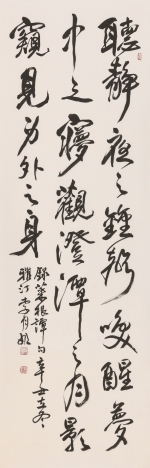 聽靜夜之鐘聲喚醒夢
中之夢觀澄潭之月影
窺見身外之身
錄菜根譚句辛丑立冬